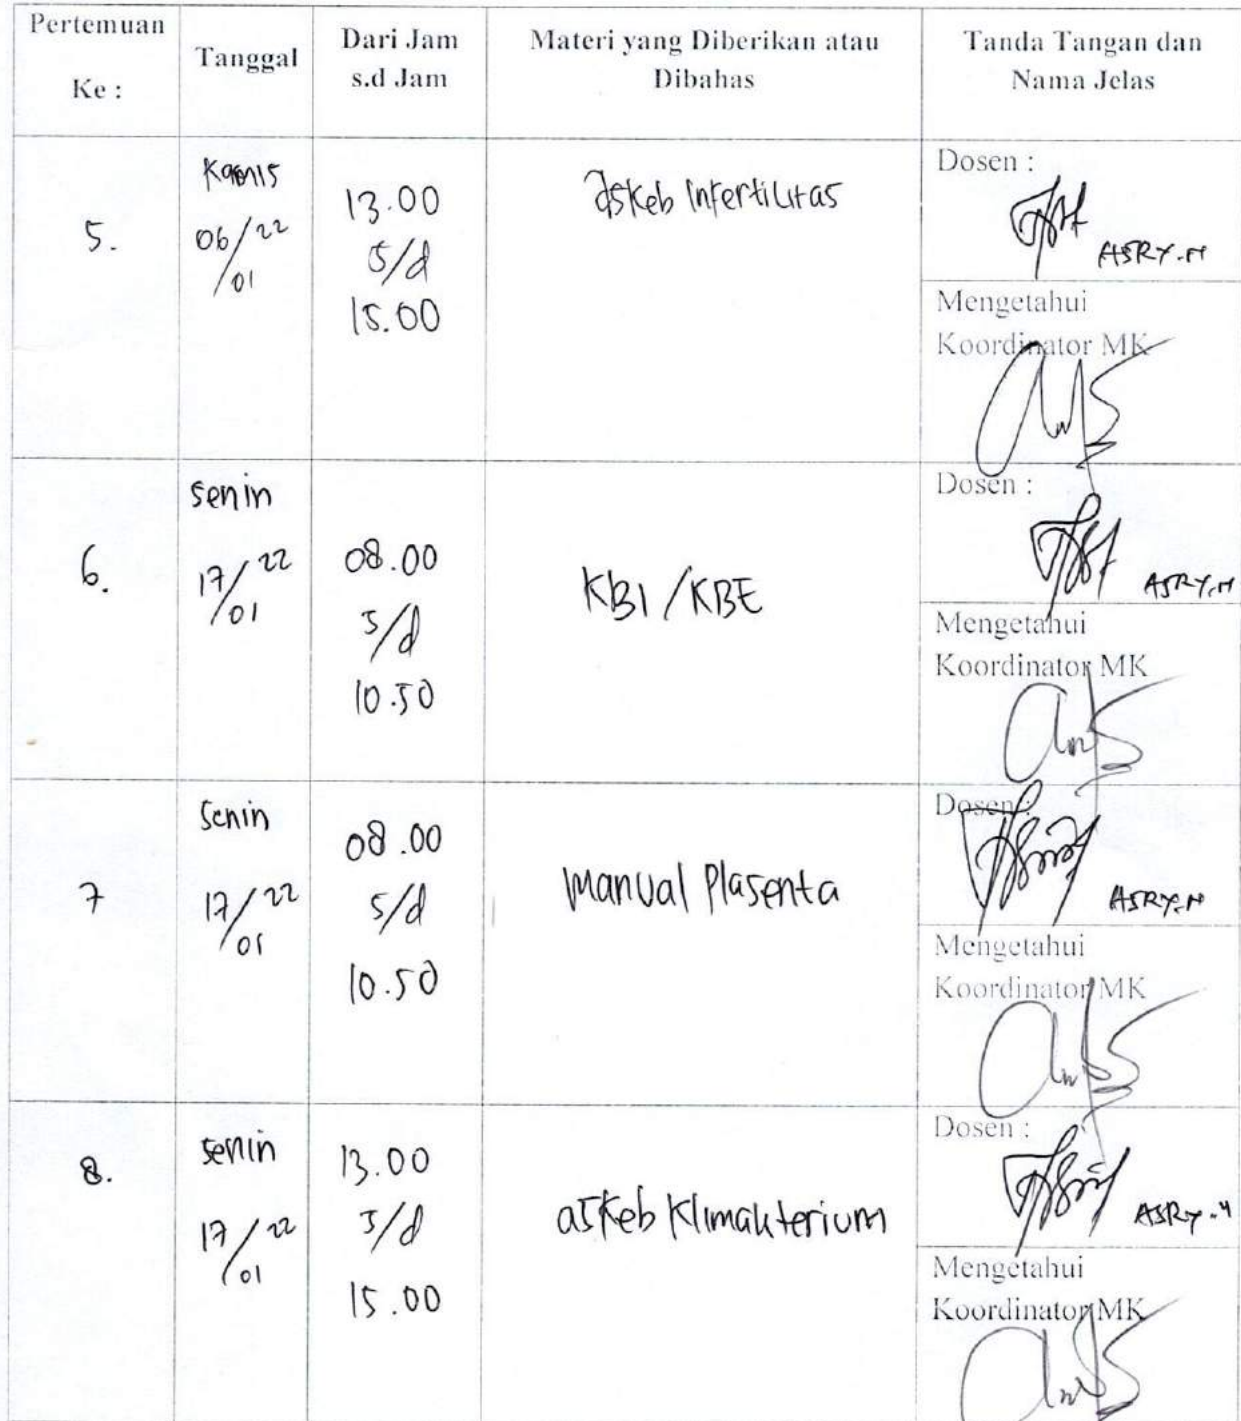 Pertemuan
Ke :
Tanggal
Dari Jam
s.d Jam
Materi yang Diberikan atau
Dibahas
Tanda Tangan dan
Nama Jelas
5.
Kamis
06/22
/01
13.00
s/d
15.00
askeb Infertilitas
Dosen :
ASRY.N
Mengetahui
Koordinator MK
6.
senin
17/22
/01
08.00
s/d
10.50
KBI/KBE
Dosen :
ASRY.N
Mengetahui
Koordinator MK
7
Senin
17/22
/01
08.00
s/d
10.50
Manual Plasenta
Dosen :
ASRY.N
Mengetahui
Koordinator MK
8.
senin
17/22
/01
13.00
s/d
15.00
askeb Klimakterium
Dosen :
ASRY.N
Mengetahui
Koordinator MK